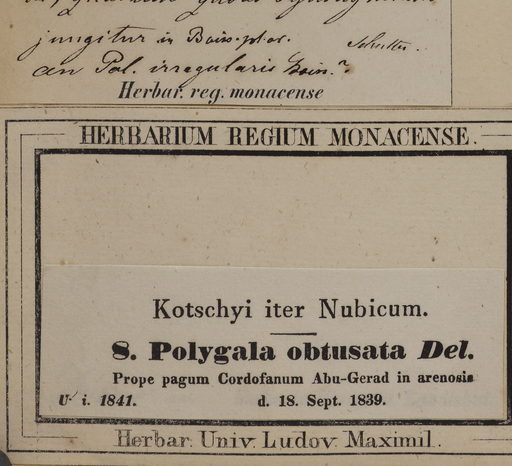 jungitur in Boiss. pl. or.
an Pol. irregularis Boiss.?
Herbar. reg. monacense
HERBARIUM REGIUM MONACENSE.
Kotschyi iter Nubicum.
8. Polygala obtusata Del.
Prope pagum Cordofanum Abu-Gerad in arenosis
U. i. 1841. d. 18. Sept. 1839.
Herbar. Univ. Ludov. Maximil.